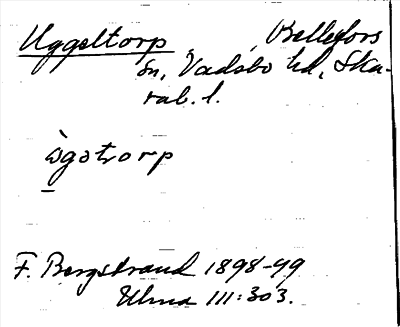 Uggeltorp, Bellefors
sn, Vadsbo hd, Ska-
rab. l.
ùgətrorp
F. Bergstrand 1898-99
Ulma III:303.